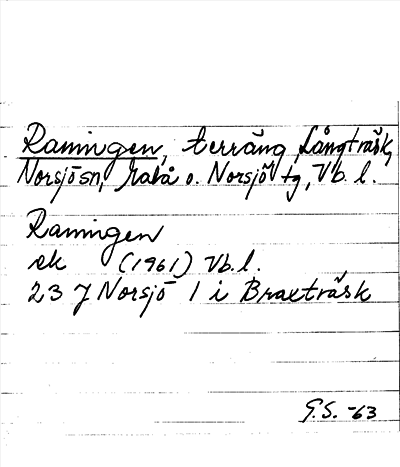 Ramingen, terräng, Långträsk,
Norsjö sn, Malå o. Norsjö tg, Vb. l.
Ramingen
ek (1961) Vb. l.
23 J Norsjö 1 i Braxträsk
G.S. -63